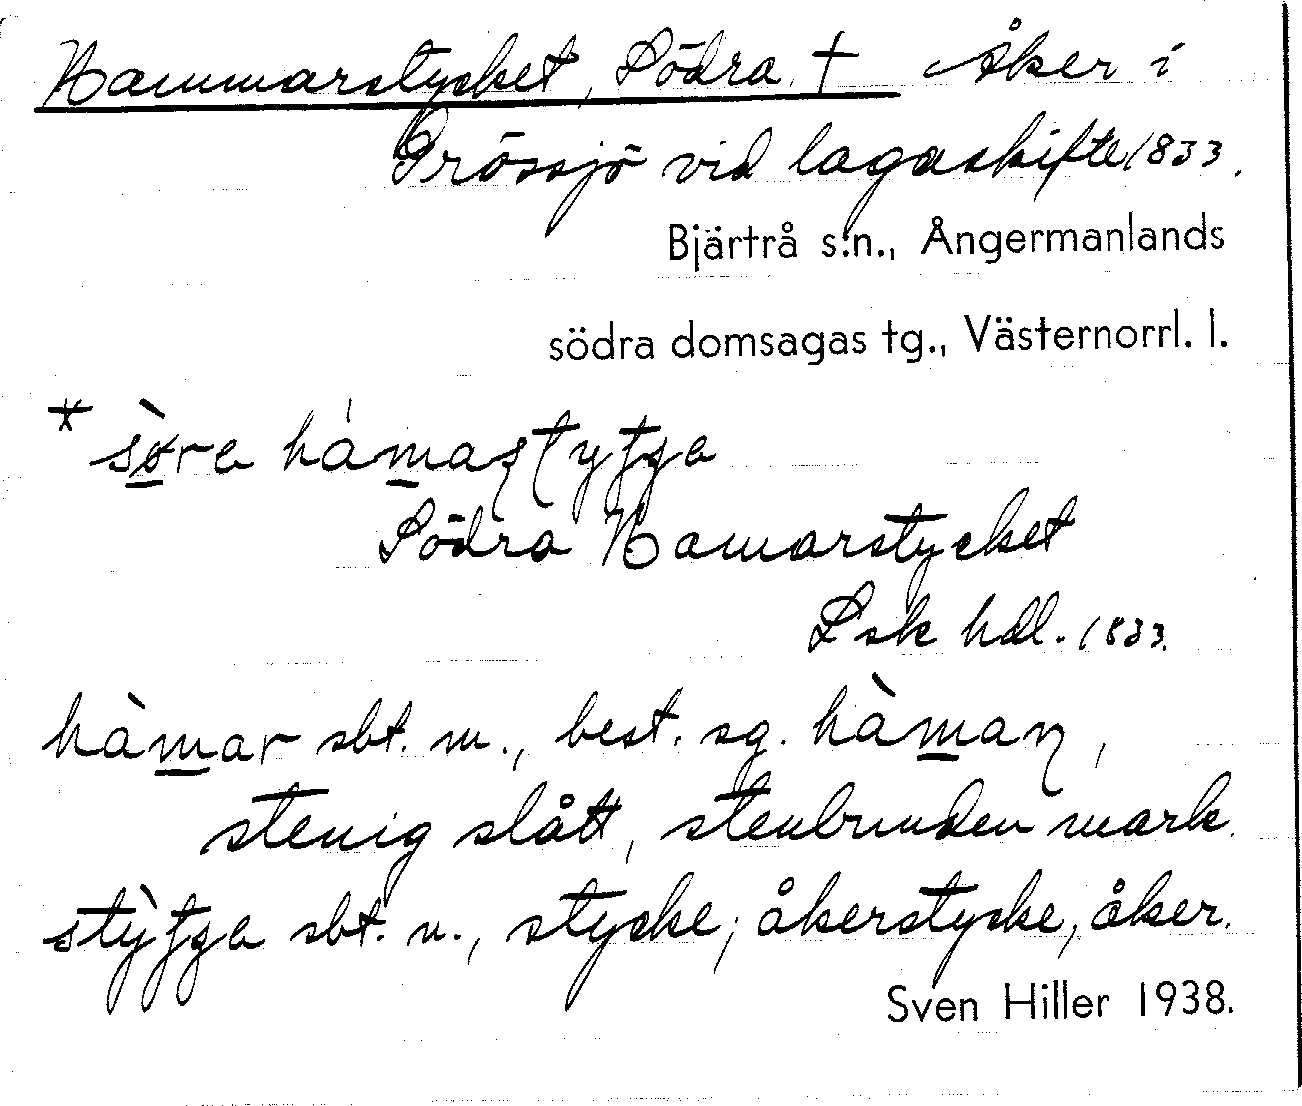 Hammarstycket, Södra † Åker i
Grössjö vid lagaskifte 1833.
Bjärtrå s:n., Ångermanlands
södra domsagas tg., Västernorrl. l.
Södra Hamarstycket
Lsk hdl. 1833.
hàmar sbt. m., best. sg. hàmaɳ,
stenig slått, stenbunden mark.
sbt. n., stycke; åkerstycke, åker.
Sven Hiller 1938.